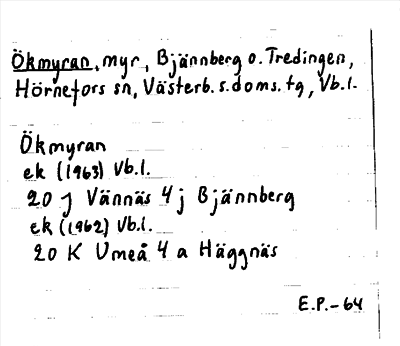 Ökmyran, myr, Bjännberg o. Tredingen,
Hörnefors sn, Västerb. s. doms. tg, Vb. l.
Ökmyran
ek (1963) Vb. l.
20 J Vännäs 4 j Bjännberg
ek (1962) Vb. l.
20 K Umeå 4 a Häggnäs
E.P.-64